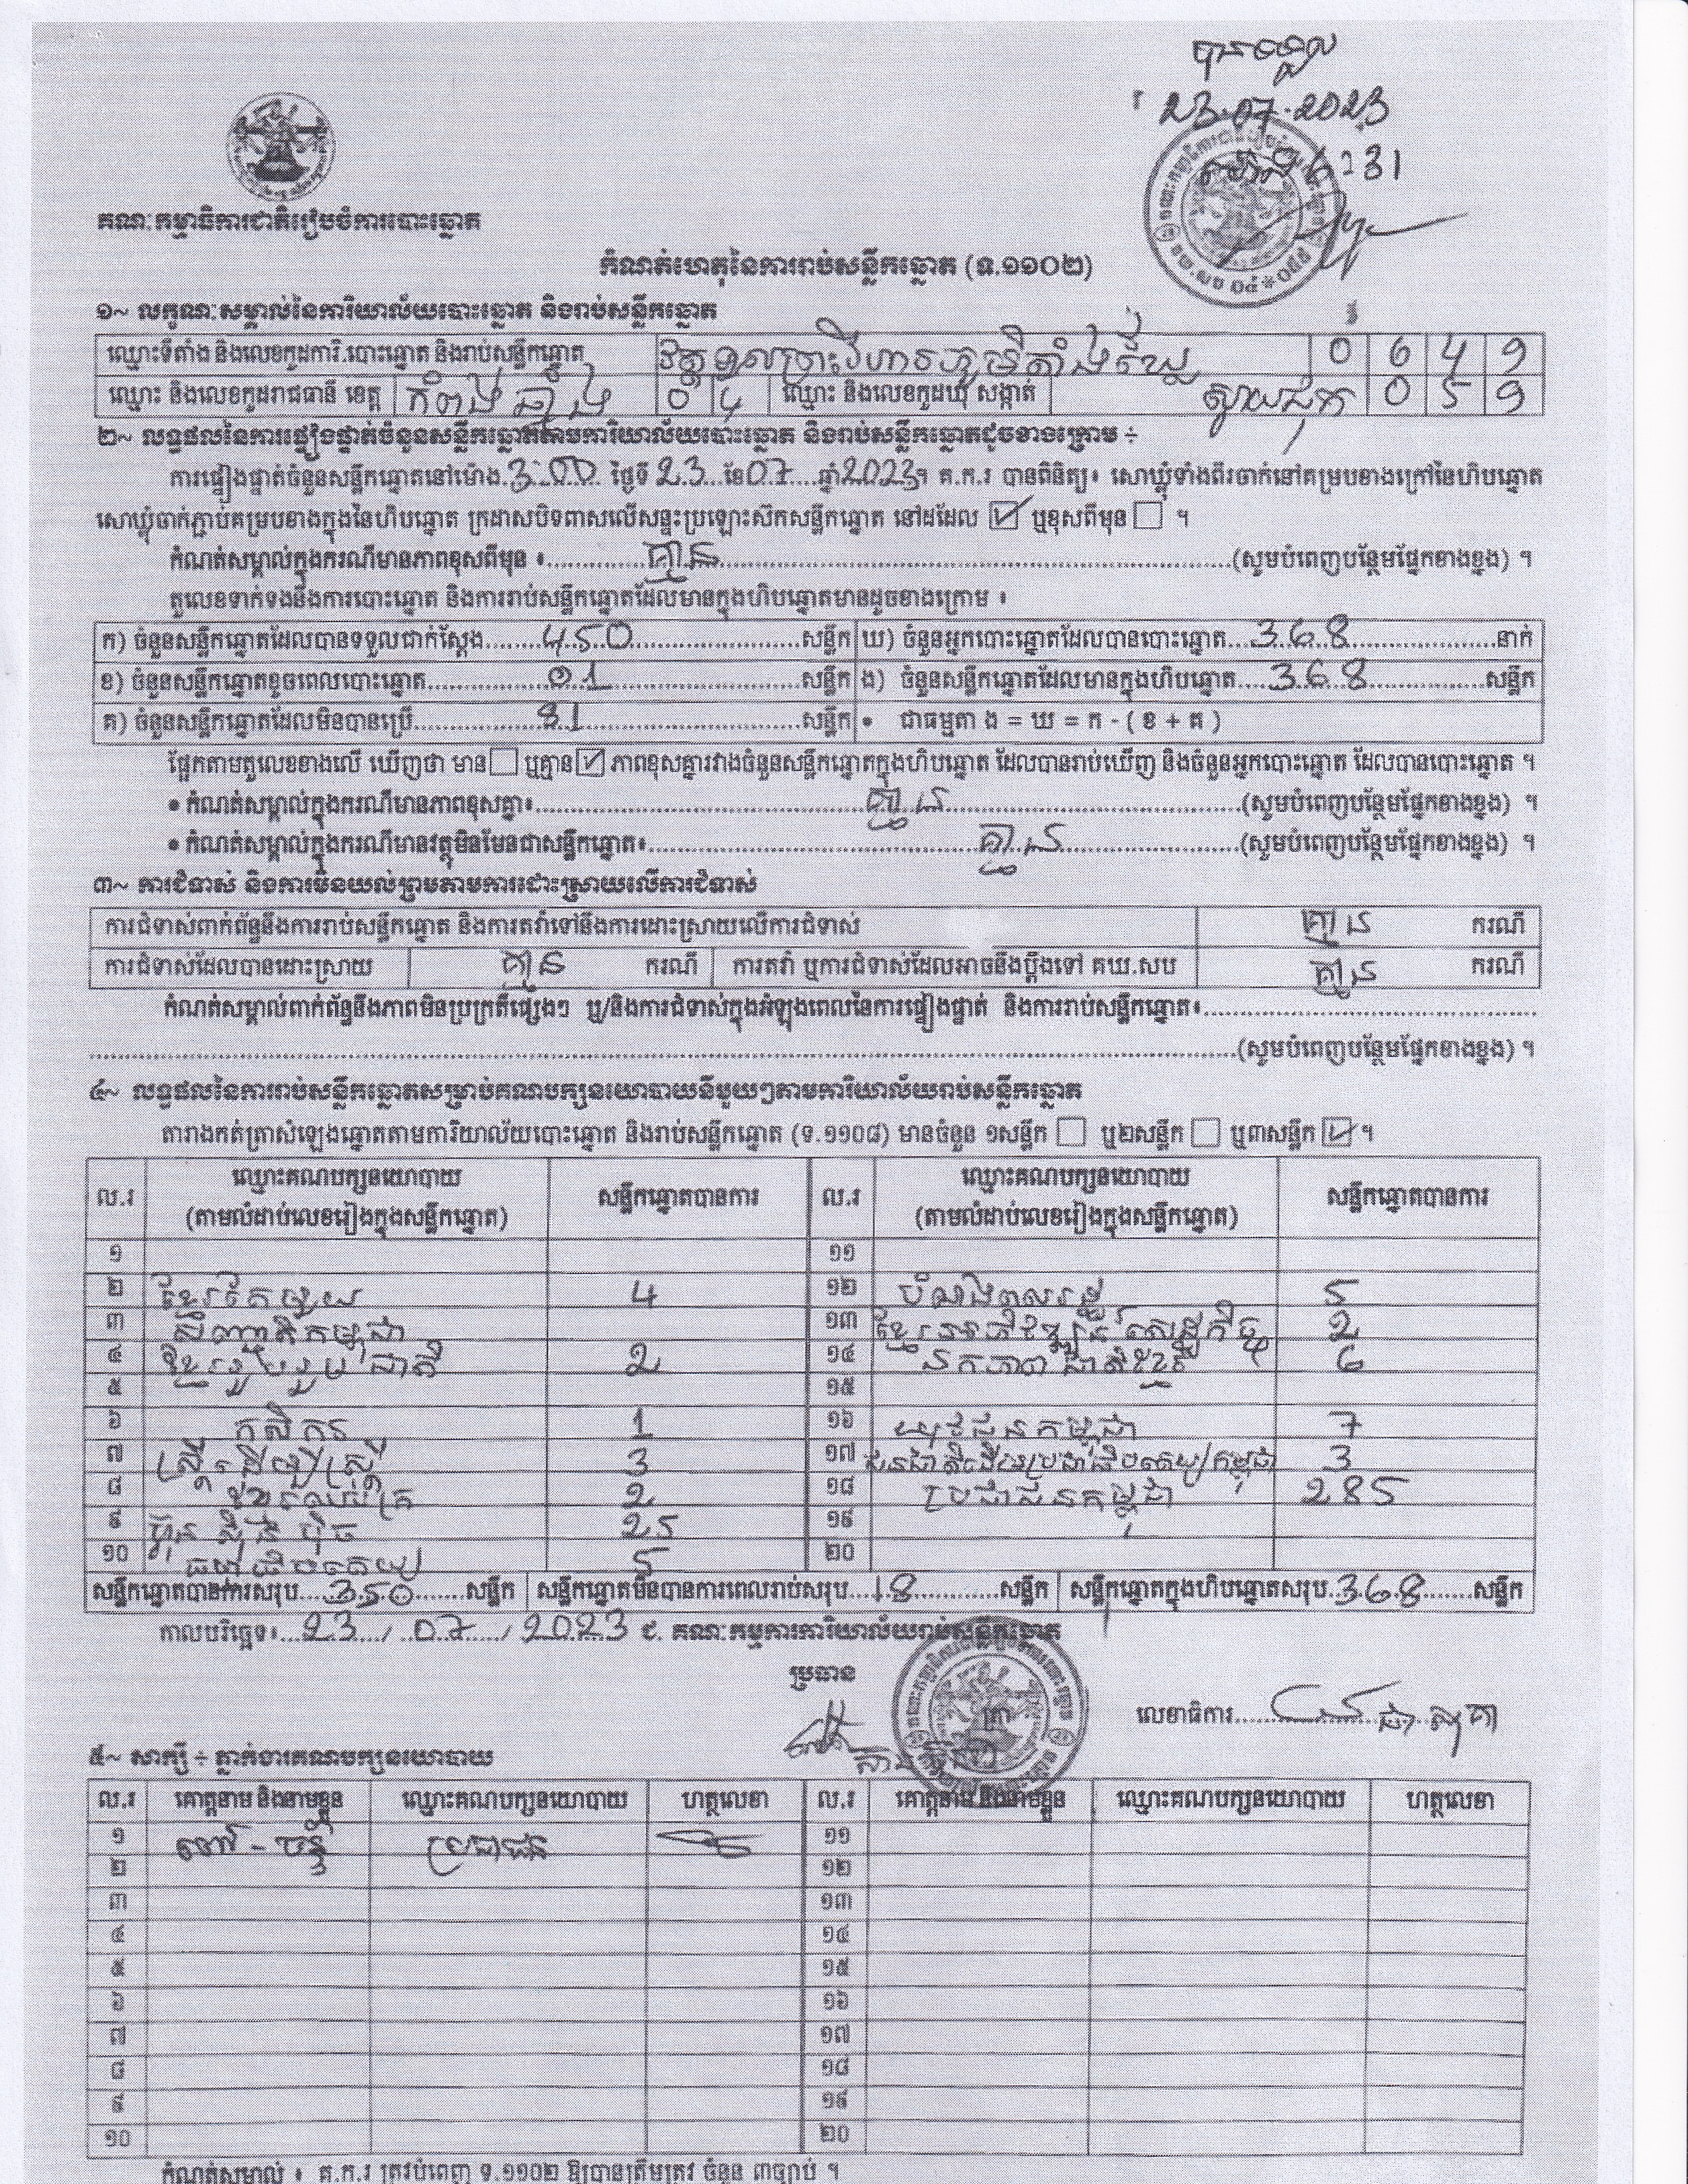 បានទទួល
23.07.2023
គណៈកម្មាធិការជាតិរៀបចំការបោះឆ្នោត
កំណត់ហេតុនៃការរាប់សន្លឹកឆ្នោត (ទ.១១០២)
១~ លក្ខណៈសម្គាល់នៃការិយាល័យបោះឆ្នោត និងរាប់សន្លឹកឆ្នោត
ឈ្មោះទីតាំង និងលេខកូដការិ.បោះឆ្នោត និងរាប់សន្លឹកឆ្នោត 0 6 4 9
ឈ្មោះ និងលេខកូដរាជធានី ខេត្ត កំពង់ឆ្នាំង 0 4 ឈ្មោះ និងលេខកូដឃុំ សង្កាត់ ស្វាយជុក 0 5 9
២~ លទ្ធផលនៃការផ្ទៀងផ្ទាត់ចំនួនសន្លឹកឆ្នោតតាមការិយាល័យបោះឆ្នោត និងរាប់សន្លឹកឆ្នោតដូចខាងក្រោម ÷
ការផ្ទៀងផ្ទាត់ចំនួនសន្លឹកឆ្នោតនៅម៉ោង 3:00 ថ្ងៃទី 23 ខែ 07 ឆ្នាំ 2023។ គ.ក.រ បានពិនិត្យ៖ សោឃ្លុំទាំងពីរចាក់នៅគម្របខាងក្រៅនៃហិបឆ្នោត
សោឃ្លុំចាក់ភ្ជាប់គម្របខាងក្នុងនៃហិបឆ្នោត ក្រដាសបិទពាសលើសន្ទះប្រឡោះស៊កសន្លឹកឆ្នោត នៅដដែល ☑ ឬខុសពីមុន ☐ ។
កំណត់សម្គាល់ក្នុងករណីមានភាពខុសពីមុន ៖ គ្មាន (សូមបំពេញបន្ថែមផ្នែកខាងខ្នង) ។
តួលេខទាក់ទងនឹងការបោះឆ្នោត និងការរាប់សន្លឹកឆ្នោតដែលមានក្នុងហិបឆ្នោតមានដូចខាងក្រោម ៖
ក) ចំនួនសន្លឹកឆ្នោតដែលបានទទួលជាក់ស្តែង 450 សន្លឹក ឃ) ចំនួនអ្នកបោះឆ្នោតដែលបានបោះឆ្នោត 368 នាក់
ខ) ចំនួនសន្លឹកឆ្នោតខូចពេលបោះឆ្នោត 01 សន្លឹក ង) ចំនួនសន្លឹកឆ្នោតដែលមានក្នុងហិបឆ្នោត 368 សន្លឹក
គ) ចំនួនសន្លឹកឆ្នោតដែលមិនបានប្រើ 81 សន្លឹក • ជាធម្មតា ង = ឃ = ក - ( ខ + គ )
ផ្អែកតាមតួលេខខាងលើ ឃើញថា មាន ☐ ឬគ្មាន ☑ ភាពខុសគ្នារវាងចំនួនសន្លឹកឆ្នោតក្នុងហិបឆ្នោត ដែលបានរាប់ឃើញ និងចំនួនអ្នកបោះឆ្នោត ដែលបានបោះឆ្នោត ។
• កំណត់សម្គាល់ក្នុងករណីមានភាពខុសគ្នា៖ គ្មាន (សូមបំពេញបន្ថែមផ្នែកខាងខ្នង) ។
• កំណត់សម្គាល់ក្នុងករណីមានវត្ថុមិនមែនជាសន្លឹកឆ្នោត៖ គ្មាន (សូមបំពេញបន្ថែមផ្នែកខាងខ្នង) ។
៣~ ការជំទាស់ និងការមិនយល់ព្រមតាមការដោះស្រាយលើការជំទាស់
ការជំទាស់ពាក់ព័ន្ធនឹងការរាប់សន្លឹកឆ្នោត និងការតវ៉ាទៅនឹងការដោះស្រាយលើការជំទាស់ គ្មាន ករណី
ការជំទាស់ដែលបានដោះស្រាយ គ្មាន ករណី ការតវ៉ា ឬការជំទាស់ដែលអាចនឹងប្តឹងទៅ គឃ.សប គ្មាន ករណី
កំណត់សម្គាល់ពាក់ព័ន្ធនឹងភាពមិនប្រក្រតីផ្សេងៗ ឬ/និងការជំទាស់ក្នុងអំឡុងពេលនៃការផ្ទៀងផ្ទាត់ និងការរាប់សន្លឹកឆ្នោត៖
(សូមបំពេញបន្ថែមផ្នែកខាងខ្នង) ។
៤~ លទ្ធផលនៃការរាប់សន្លឹកឆ្នោតសម្រាប់គណបក្សនយោបាយនីមួយៗតាមការិយាល័យរាប់សន្លឹកឆ្នោត
តារាងកត់ត្រាសំឡេងឆ្នោតតាមការិយាល័យបោះឆ្នោត និងរាប់សន្លឹកឆ្នោត (ទ.១១០៨) មានចំនួន ១សន្លឹក ☐ ឬ២សន្លឹក ☐ ឬ៣សន្លឹក ☑ ។
ល.រ ឈ្មោះគណបក្សនយោបាយ (តាមលំដាប់លេខរៀងក្នុងសន្លឹកឆ្នោត) សន្លឹកឆ្នោតបានការ ល.រ ឈ្មោះគណបក្សនយោបាយ (តាមលំដាប់លេខរៀងក្នុងសន្លឹកឆ្នោត) សន្លឹកឆ្នោតបានការ
១ ១១
២ ខ្មែរតែមួយ 4 ១២ 5
៣ សញ្ជាតិកម្ពុជា ១៣ ខ្មែរអភិវឌ្ឍន៍សេដ្ឋកិច្ច 2
៤ ខ្មែររួបរួមជាតិ 2 ១៤ ឯកភាពជាតិខ្មែរ 6
៥ ១៥
៦ កសិករ 1 ១៦ យុវជនកម្ពុជា 7
៧ ស្ត្រីដើម្បីស្ត្រី 3 ១៧ 3
៨ 2 ១៨ ប្រជាជនកម្ពុជា 285
៩ ហ្វ៊ុនស៊ិនប៉ិច 25 ១៩
១០ ធម្មាធិបតេយ្យ 5 ២០
សន្លឹកឆ្នោតបានការសរុប 350 សន្លឹក សន្លឹកឆ្នោតមិនបានការពេលរាប់សរុប 18 សន្លឹក សន្លឹកឆ្នោតក្នុងហិបឆ្នោតសរុប 368 សន្លឹក
កាលបរិច្ឆេទ៖ 23 / 07 / 2023 ជ. គណៈកម្មការការិយាល័យរាប់សន្លឹកឆ្នោត
ប្រធាន
លេខាធិការ
៥~ សាក្សី ÷ ភ្នាក់ងារគណបក្សនយោបាយ
ល.រ គោត្តនាម និងនាមខ្លួន ឈ្មោះគណបក្សនយោបាយ ហត្ថលេខា ល.រ គោត្តនាម និងនាមខ្លួន ឈ្មោះគណបក្សនយោបាយ ហត្ថលេខា
១ ប្រជាជន ១១
២ ១២
៣ ១៣
៤ ១៤
៥ ១៥
៦ ១៦
៧ ១៧
៨ ១៨
៩ ១៩
១០ ២០
កំណត់សម្គាល់ ៖ គ.ក.រ ត្រូវបំពេញ ទ.១១០២ ឱ្យបានត្រឹមត្រូវ ចំនួន ៣ច្បាប់ ។